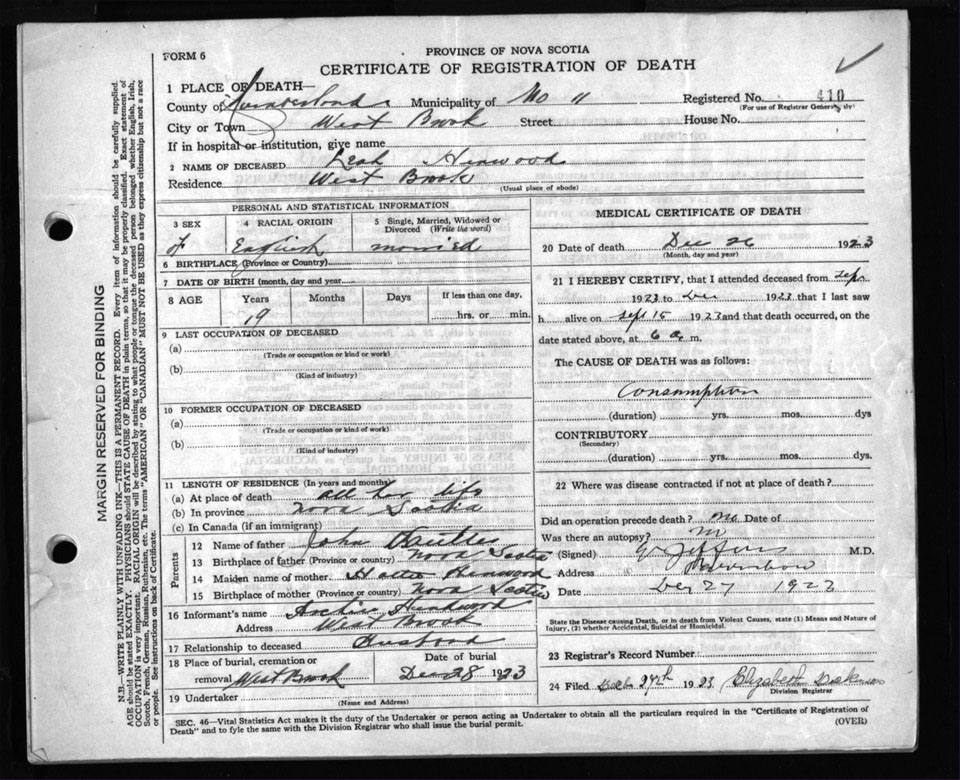 PROVINCE OF NOVA SCOTIA
FORM 6
CERTIFICATE OF REGISTRATION OF DEATH
1 PLACE OF DEATH—
County of Cumberland Municipality of No 11 Registered No. 410
(For use of Registrar General only)
City or Town West Brook Street House No.
If in hospital or institution, give name
2 NAME OF DECEASED Leah Henwood
Residence West Brook
(Usual place of abode)
PERSONAL AND STATISTICAL INFORMATION
3 SEX 4 RACIAL ORIGIN 5 Single, Married, Widowed or
Divorced (Write the word)
f English married
6 BIRTHPLACE (Province or Country)
7 DATE OF BIRTH (month, day and year)
8 AGE Years Months Days If less than one day,
19 hrs. or min.
9 LAST OCCUPATION OF DECEASED
(a)
(Trade or occupation or kind or work)
(b)
(Kind of industry)
10 FORMER OCCUPATION OF DECEASED
(a)
(Trade or occupation or kind of work)
(b)
(Kind of industry)
11 LENGTH OF RESIDENCE (In years and months)
(a) At place of death all her life
(b) In province Nova Scotia
(c) In Canada (if an immigrant)
Parents
12 Name of father John
13 Birthplace of father (Province or country) Nova Scotia
14 Maiden name of mother Henwood
15 Birthplace of mother (Province or country) Nova Scotia
16 Informant's name Archie Henwood
Address West Brook
17 Relationship to deceased Husband
18 Place of burial, cremation or Date of burial
removal West Brook Dec 28 1923
19 Undertaker
(Name and Address)
MEDICAL CERTIFICATE OF DEATH
20 Date of death Dec 26 1923
(Month, day and year)
21 I HEREBY CERTIFY, that I attended deceased from Sep
1923 to Dec 1923 that I last saw
h alive on Sept 15 1923 and that death occurred, on the
date stated above, at 6 a. m.
The CAUSE OF DEATH was as follows:
Consumption
(duration) yrs. mos. dys
CONTRIBUTORY
(Secondary)
(duration) yrs. mos. dys.
22 Where was disease contracted if not at place of death?
Did an operation precede death? no Date of
Was there an autopsy? no
(Signed) Jeffers M.D.
Address
Date Dec 27 1923
State the Disease causing Death, or in death from Violent Causes, state (1) Means and Nature of
Injury, (2) whether Accidental, Suicidal or Homicidal.
23 Registrar's Record Number
24 Filed Dec 27th 1923 Elizabeth
Division Registrar
SEC. 46—Vital Statistics Act makes it the duty of the Undertaker or person acting as Undertaker to obtain all the particulars required in the "Certificate of Registration of
Death" and to fyle the same with the Division Registrar who shall issue the burial permit. (OVER)
MARGIN RESERVED FOR BINDING
N.B.—WRITE PLAINLY WITH UNFADING INK—THIS IS A PERMANENT RECORD. Every item of information should be carefully supplied.
AGE should be stated EXACTLY. PHYSICIANS should STATE CAUSE OF DEATH in plain terms, so that it may be properly classified. Exact statement of
OCCUPATION is very important. RACIAL ORIGIN will be described by stating to what people or tongue the deceased person belonged whether English, Irish,
Scotch, French, German, Russian, Ruthenian, etc. The terms "AMERICAN" OR "CANADIAN" MUST NOT BE USED as they express citizenship but not a race
or people. See instructions on back of Certificate.